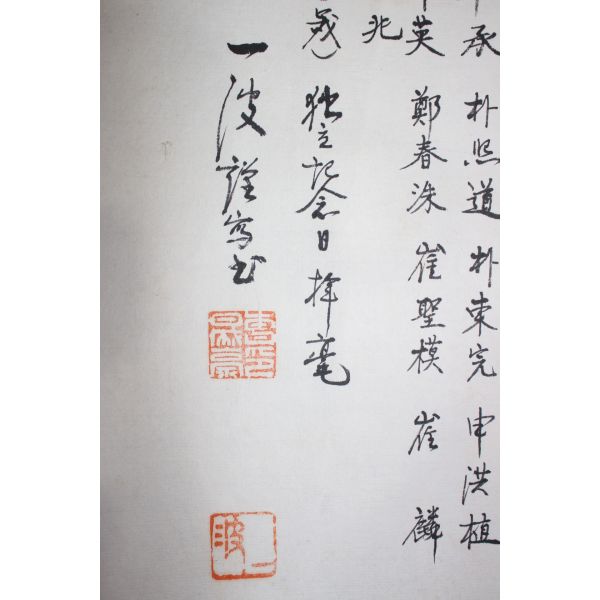 承 朴熙道 朴東完 申洪植
英 鄭春洙 崔聖模 崔麟
兆
歲) 独立記念日 揮毫
一波 謹寫書
一波